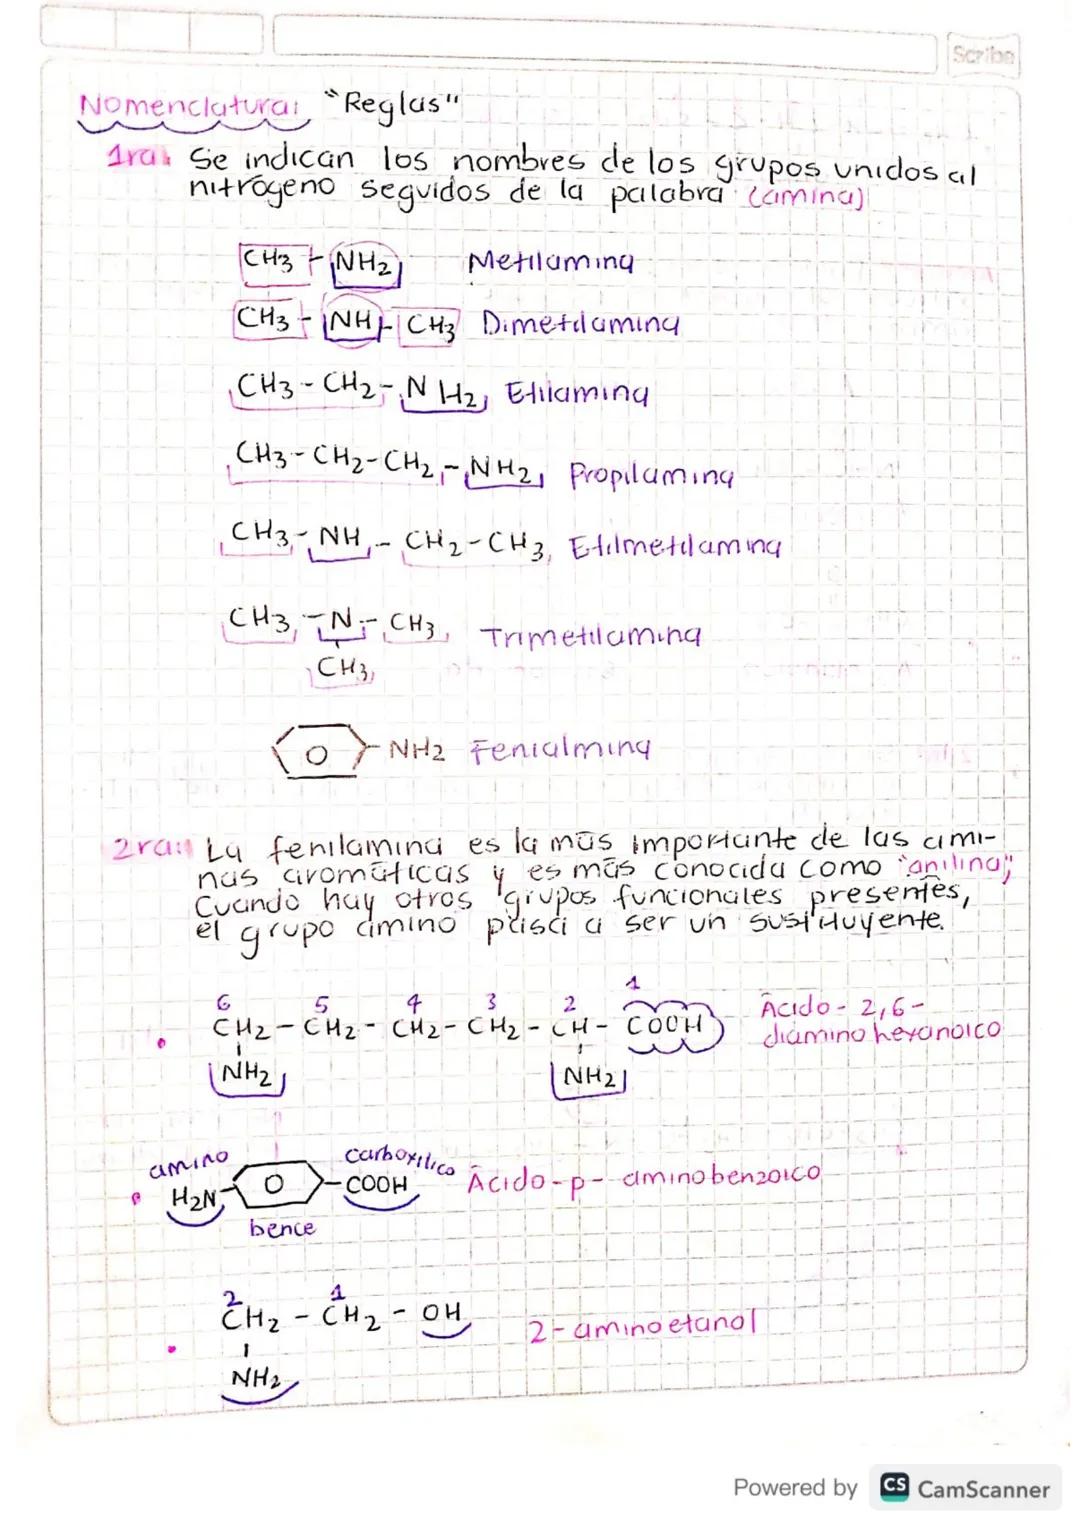 Scribe
Nomenclatura: "Reglas"
1ra: Se indican los nombres de los grupos unidos al
nitrógeno seguidos de la palabra (amina)
CH3 - NH2 Metilamina
CH3 - NH - CH3 Dimetilamina
CH3 - CH2 - NH2 Etilamina
CH3 - CH2 - CH2 - NH2 Propilamina
CH3 - NH - CH2 - CH3 Etilmetilamina
CH3 - N - CH3 Trimetilamina
CH3
NH2 Fenialmina
2ra: La fenilamina es la más importante de las ami-
nas aromáticas y es más conocida como "anilina",
Cuando hay otros grupos funcionales presentes,
el grupo amino pasa a ser un sustituyente.
6 5 4 3 2 1
CH2 - CH2 - CH2 - CH2 - CH - COOH Ácido - 2,6-
diamino hexanoico
NH2 NH2
amino carboxilico
H2N - COOH Ácido - p - aminobenzoico
bence
2 1
CH2 - CH2 - OH 2 - aminoetanol
NH2
Powered by CS CamScanner